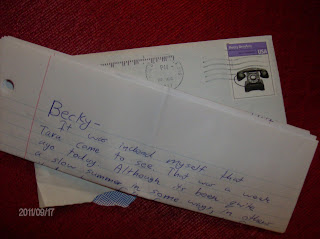 USA
Becky-
It was indeed myself that
Tara came to see. That was a week
ago today. Although it's been quite
a slow summer in some ways, in other
2011/09/17